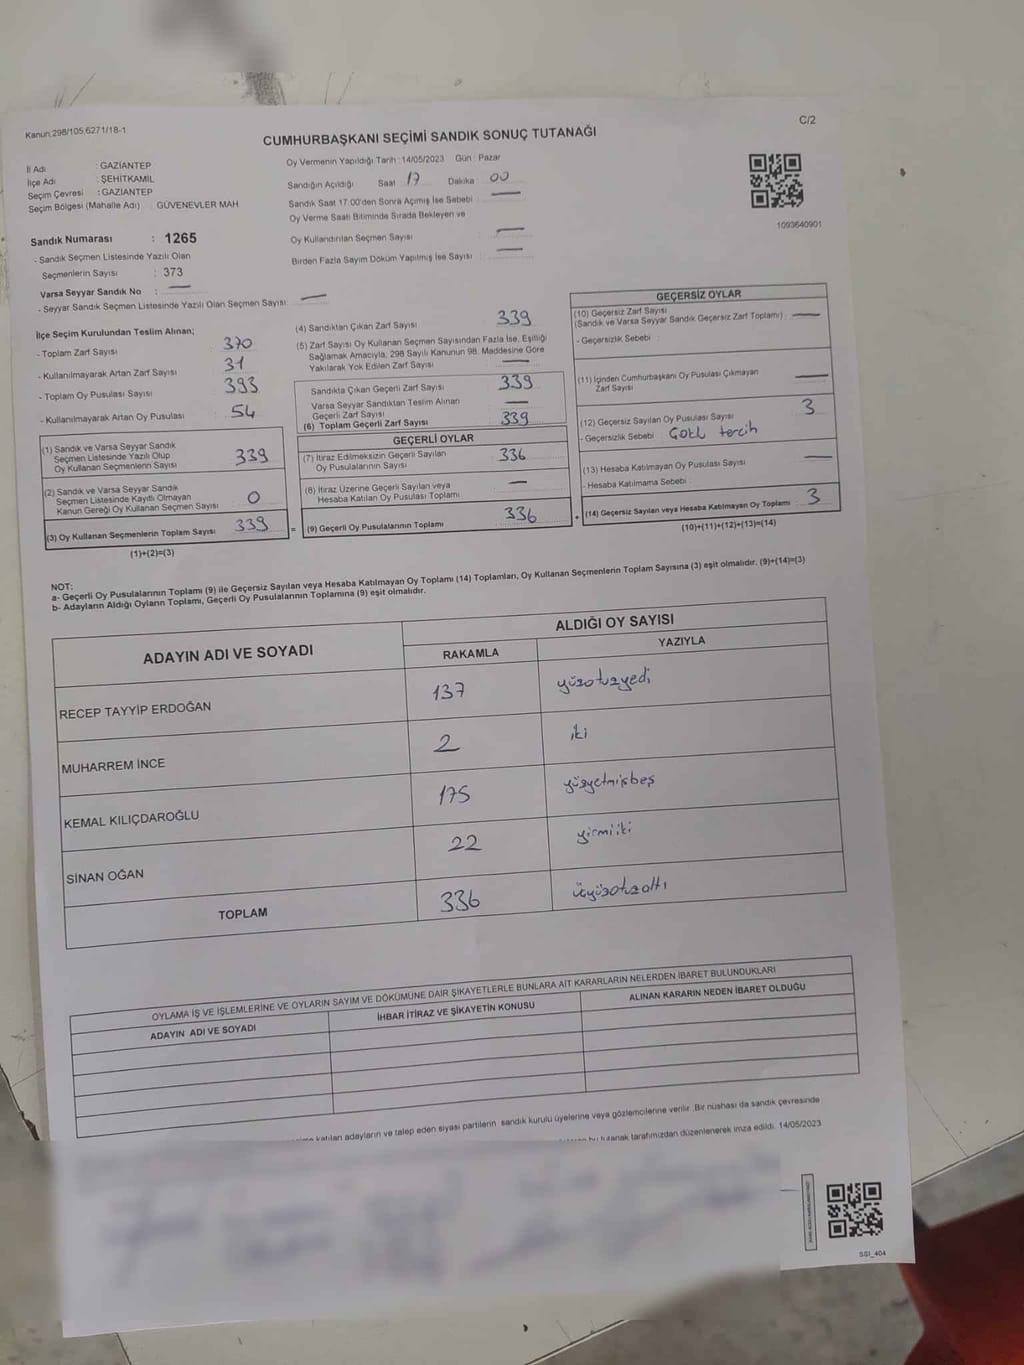 Kanun:298/105;6271/18-1
C/2
CUMHURBAŞKANI SEÇİMİ SANDIK SONUÇ TUTANAĞI
İl Adı : GAZİANTEP
İlçe Adı : ŞEHİTKAMİL
Seçim Çevresi : GAZİANTEP
Seçim Bölgesi (Mahalle Adı) : GÜVENEVLER MAH
Oy Vermenin Yapıldığı Tarih :14/05/2023 Gün : Pazar
Sandığın Açıldığı Saat 17 Dakika 00
Sandık Saat 17.00'den Sonra Açımış İse Sebebi —
Oy Verme Saati Bitiminde Sırada Bekleyen ve
Oy Kullandırılan Seçmen Sayısı —
Birden Fazla Sayım Döküm Yapılmış İse Sayısı —
1093640901
Sandık Numarası : 1265
- Sandık Seçmen Listesinde Yazılı Olan
Seçmenlerin Sayısı : 373
Varsa Seyyar Sandık No : —
- Seyyar Sandık Seçmen Listesinde Yazılı Olan Seçmen Sayısı: —
İlçe Seçim Kurulundan Teslim Alınan;
- Toplam Zarf Sayısı 370
- Kullanılmayarak Artan Zarf Sayısı 31
- Toplam Oy Pusulası Sayısı 393
- Kullanılmayarak Artan Oy Pusulası 54
(1) Sandık ve Varsa Seyyar Sandık
Seçmen Listesinde Yazılı Olup
Oy Kullanan Seçmenlerin Sayısı 339
(2) Sandık ve Varsa Seyyar Sandık
Seçmen Listesinde Kayıtlı Olmayan
Kanun Gereği Oy Kullanan Seçmen Sayısı 0
(3) Oy Kullanan Seçmenlerin Toplam Sayısı 339
(1)+(2)=(3)
(4) Sandıktan Çıkan Zarf Sayısı 339
(5) Zarf Sayısı Oy Kullanan Seçmen Sayısından Fazla İse, Eşitliği
Sağlamak Amacıyla, 298 Sayılı Kanunun 98. Maddesine Göre
Yakılarak Yok Edilen Zarf Sayısı —
Sandıkta Çıkan Geçerli Zarf Sayısı 339
Varsa Seyyar Sandıktan Teslim Alınan
Geçerli Zarf Sayısı —
(6) Toplam Geçerli Zarf Sayısı 339
GEÇERLİ OYLAR
(7) İtiraz Edilmeksizin Geçerli Sayılan
Oy Pusulalarının Sayısı 336
(8) İtiraz Üzerine Geçerli Sayılan veya
Hesaba Katılan Oy Pusulası Toplamı —
= (9) Geçerli Oy Pusulalarının Toplamı 336
GEÇERSİZ OYLAR
(10) Geçersiz Zarf Sayısı
(Sandık ve Varsa Seyyar Sandık Geçersiz Zarf Toplamı) : —
- Geçersizlik Sebebi :
(11) İçinden Cumhurbaşkanı Oy Pusulası Çıkmayan
Zarf Sayısı —
(12) Geçersiz Sayılan Oy Pusulası Sayısı 3
- Geçersizlik Sebebi Çoklu tercih
(13) Hesaba Katılmayan Oy Pusulası Sayısı —
- Hesaba Katılmama Sebebi :
+ (14) Geçersiz Sayılan veya Hesaba Katılmayan Oy Toplamı 3
(10)+(11)+(12)+(13)=(14)
NOT:
a- Geçerli Oy Pusulalarının Toplamı (9) ile Geçersiz Sayılan veya Hesaba Katılmayan Oy Toplamı (14) Toplamları, Oy Kullanan Seçmenlerin Toplam Sayısına (3) eşit olmalıdır. (9)+(14)=(3)
b- Adayların Aldığı Oyların Toplamı, Geçerli Oy Pusulalarının Toplamına (9) eşit olmalıdır.
ADAYIN ADI VE SOYADI
ALDIĞI OY SAYISI
RAKAMLA YAZIYLA
RECEP TAYYİP ERDOĞAN 137 yüzotuzyedi
MUHARREM İNCE 2 iki
KEMAL KILIÇDAROĞLU 175 yüzyetmişbeş
SİNAN OĞAN 22 yirmiiki
TOPLAM 336 üçyüzotuzaltı
OYLAMA İŞ VE İŞLEMLERİNE VE OYLARIN SAYIM VE DÖKÜMÜNE DAİR ŞİKAYETLERLE BUNLARA AİT KARARLARIN NELERDEN İBARET BULUNDUKLARI
ADAYIN ADI VE SOYADI İHBAR İTİRAZ VE ŞİKAYETİN KONUSU ALINAN KARARIN NEDEN İBARET OLDUĞU
katılan adayların ve talep eden siyasi partilerin sandık kurulu üyelerine veya gözlemcilerine verilir. Bir nüshası da sandık çevresinde
bu tutanak tarafımızdan düzenlenerek imza edildi. 14/05/2023
SGI_404